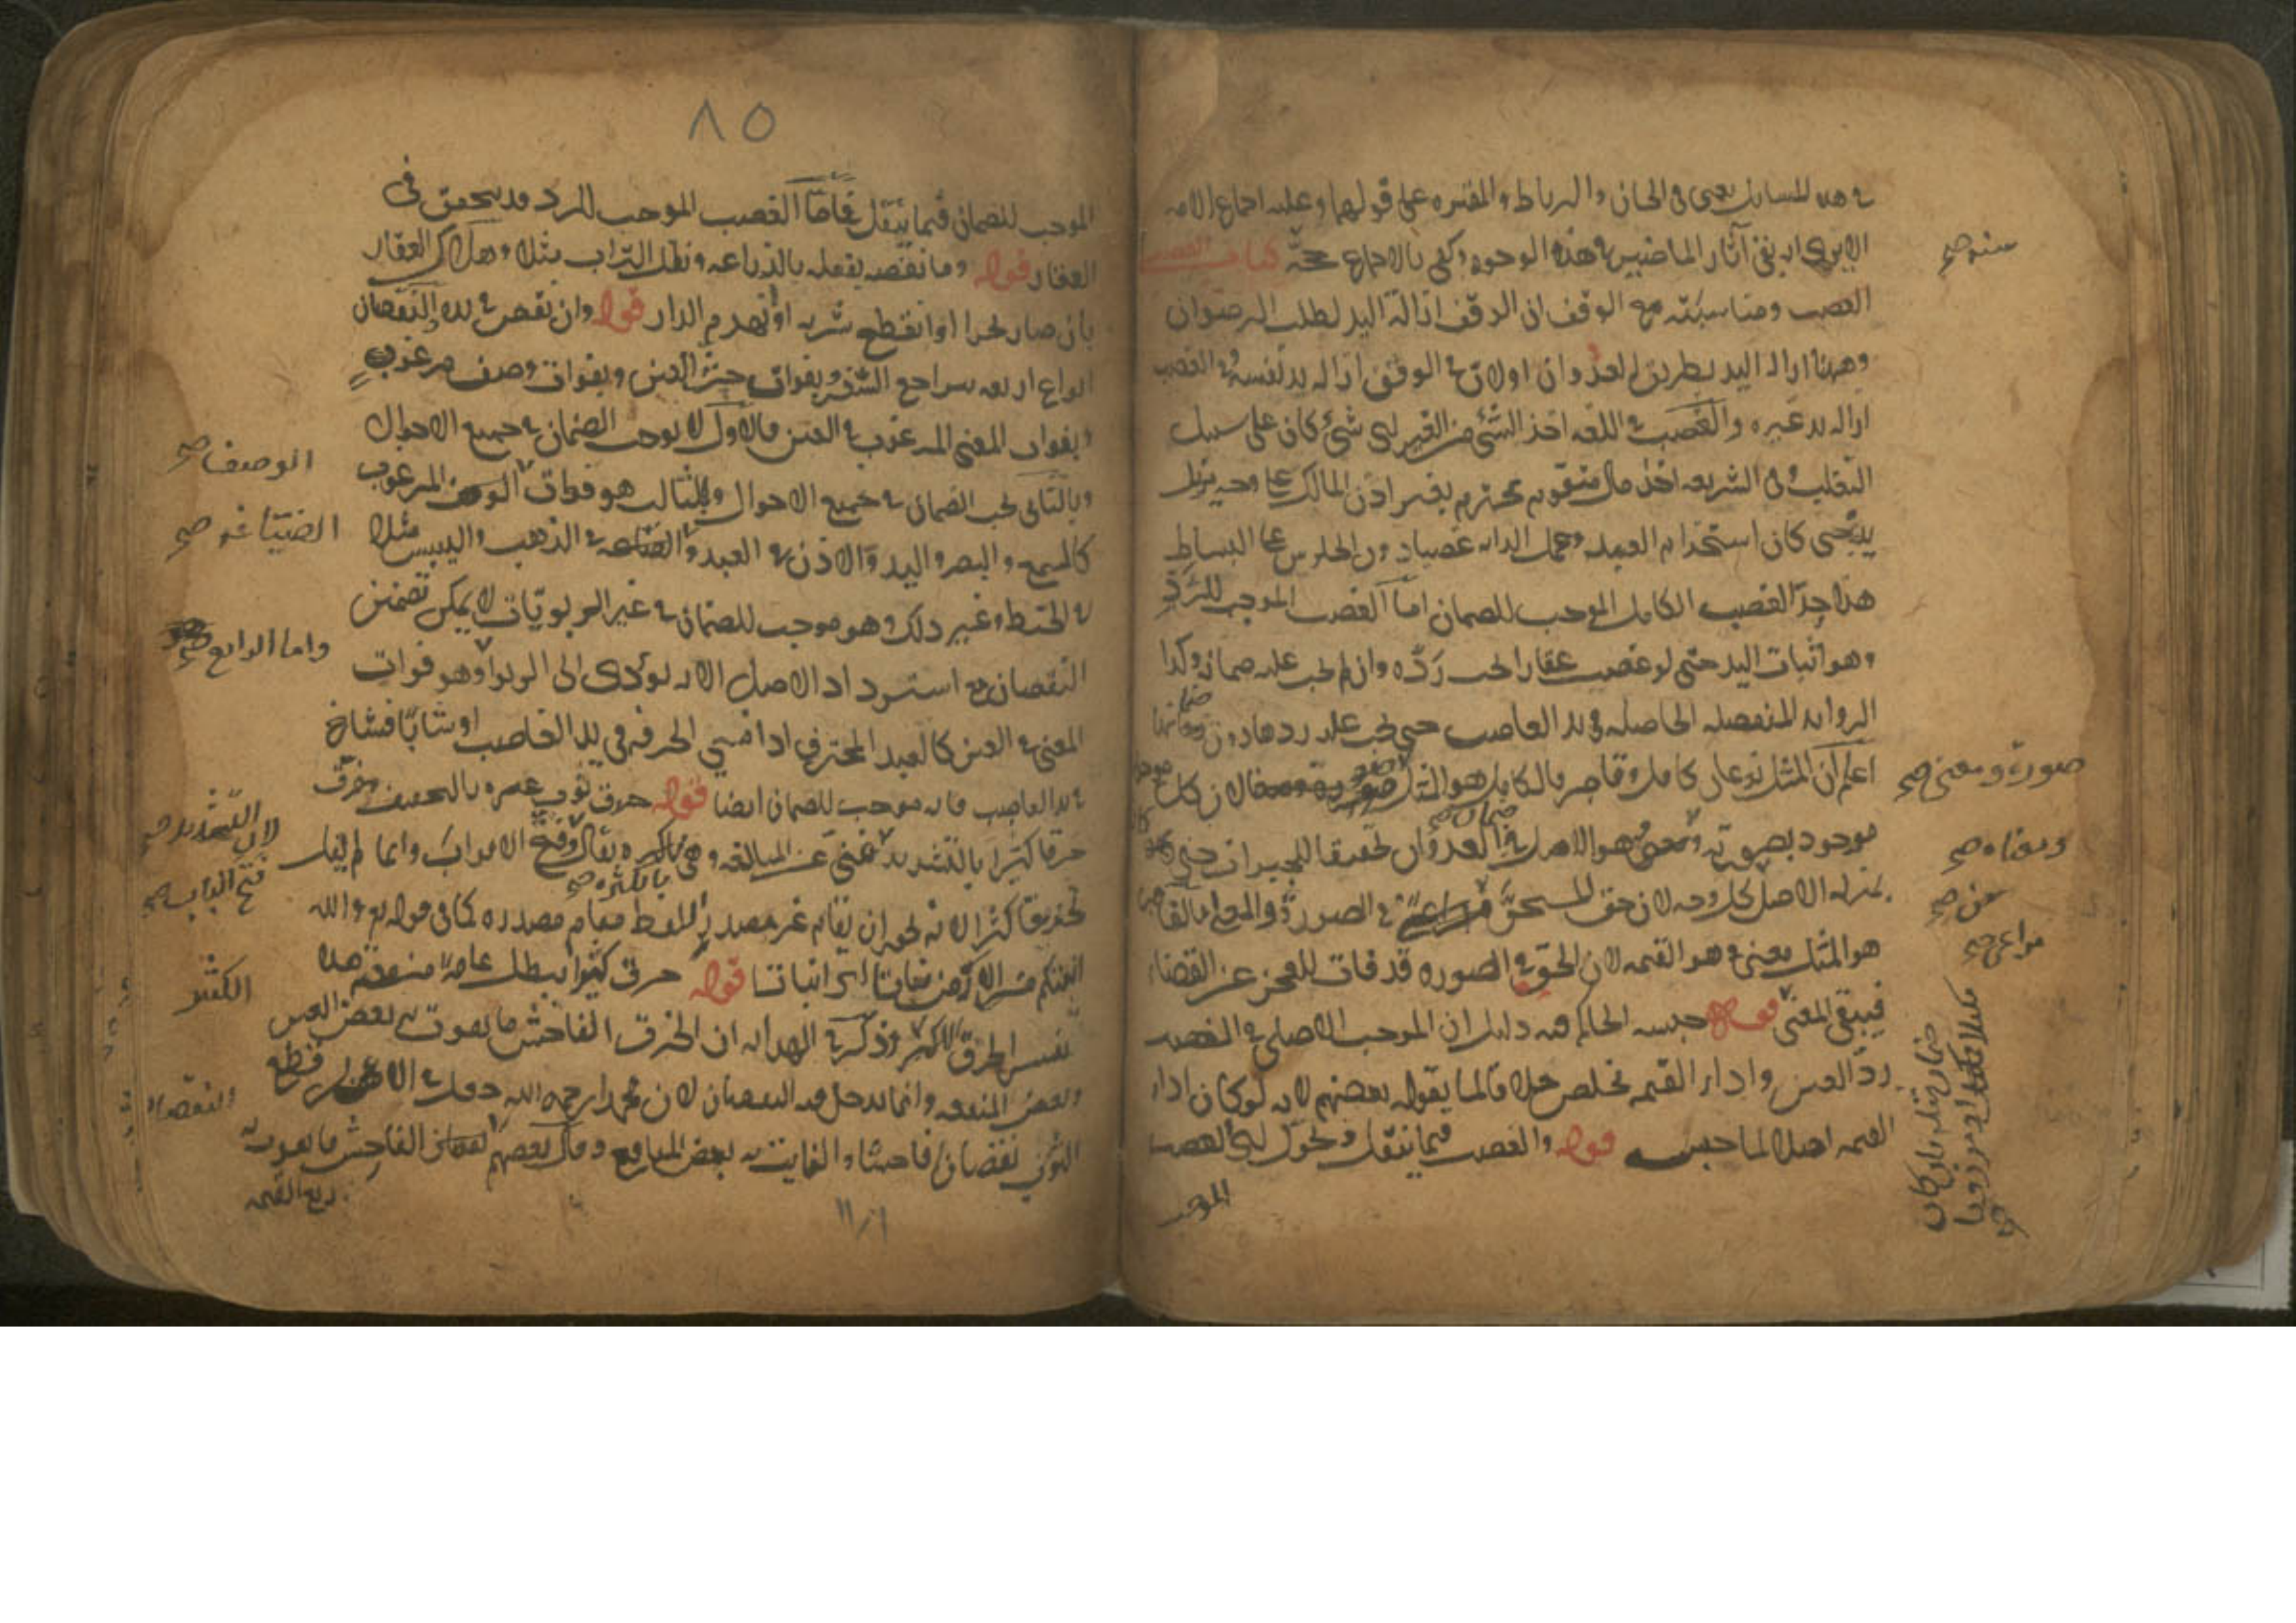 في هذه المسائل يعني في الخان والرباط والمقبرة على قولهما وعليه اجماع الامة
آثار الماضيين في هذه الوجوه وكفى بالاجماع حجة كتاب الغصب
الغصب ومناسبته مع الوقف ان الوقف ازالة اليد لطلب الرضوان
وههنا ازالة اليد بطريق العدوان اولان في الوقف ازالة يد نفسه وفي الغصب
ازالة يد غيره والغصب في اللغة اخذ الشئ من الغير اي شئ كان على سبيل
التغلب وفي الشريعة اخذ مال متقوم محترم بغير اذن المالك على وجه يزيل
يده حتى كان استخدام العبد وحمل الدابة غصبا دون الجلوس على البساط
هذا حد الغصب الكامل الموجب للضمان اما الغصب الموجب للرد
وهو اثبات اليد حتى لو غصب عقارا يجب رده وان لم يجب عليه ضمانه وكذا
الزوايد المنفصلة الحاصلة في يد الغاصب حتى يجب عليه ردها دون ضمانها
اعلم ان المثل نوعان كامل وقاصر فالكامل هو المثل لان كل
موجود بصورته هو الاصل في ضمان العدوان تحقيقا للجبران حتى
بمنزلة الاصل من كل وجه لان حق المستحق في الصورة والمعنى اما القاصر
هو المثل معنى وهو القيمة لان الحق في الصورة قد فات للعجز عن القضاء
فيبقى المعنى قوله حبسه الحاكم فيه دليل ان الموجب الاصلي في الغصب
رد العين واداء القيمة مخلص خلافا لما يقوله بعضهم لانه لو كان اداء
القيمة اصلا لما حبس قوله والغصب فيما ينقل ويحول اي الغصب
الموجب
منه صح
صورة ومعنى صح
ومعناه صح
عن صح
مراعى صح
٨٥
الموجب للضمان فيما ينقل فاما الغصب الموجب للرد قد يتحقق في
العقار قوله وما نقصه بفعله بالزراعة ونقل التراب مثلا وهلاك العقار
بان صار بحرا او انقطع شربه او انهدم الدار قوله وان نقص في يده النقصان
انواع اربعة بتراجع السعر وبفوات جزء العين وبفوات وصف مرغوب
وبفوات المعنى المرغوب في العين فالاول لا يوجب الضمان في جميع الاحوال
وبالثاني يجب الضمان في جميع الاحوال والثالث هو فوات الوصف المرغوب
كالسمع والبصر واليد والاذن في العبد والصياغة في الذهب واليبس مثلا
في الحنطة وغير ذلك وهو موجب للضمان في غير الربويات لا يمكن تضمين
النقصان مع استرداد الاصل لانه يؤدي الى الربوا وهو فوات
المعنى في العين كالعبد المحترف اذا نسي الحرفة في يد الغاصب او شابا فشاخ
في يد الغاصب فانه موجب للضمان ايضا قوله خرق ثوب غيره بالتخفيف خرق
خرقا كثيرا بالتشديد يقال وفتح الابواب وانما لم يقل
تخريقا كثيرا لانه يجوز ان يقام غير مصدر اللفظ مقام مصدره كما في قوله تع والله
انبتكم من الارض نباتا اي انباتا قوله خرق كثيرا يبطل عامة منفعته هذا
تفسير الخرق الكثير وذكر في الهداية ان الخرق الفاحش ما يفوت به بعض العين
وبعض المنفعة وانما يدخل فيه النقصان لان محمدا رحمه الله جعل في الاصل قطع
الثوب نقصانا فاحشا والفايت به بعض المنافع وقال بعضهم الفاحش ما يفوت به
ربع القيمة
الوصف صح
الصياغة صح
واما الرابع صح
فتح الباب صح
الكثير
النقصان